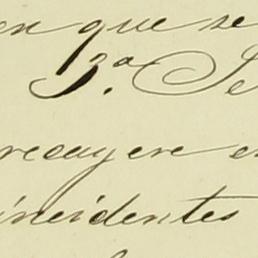 en que se
3.ª Se
recayere e
incidentes